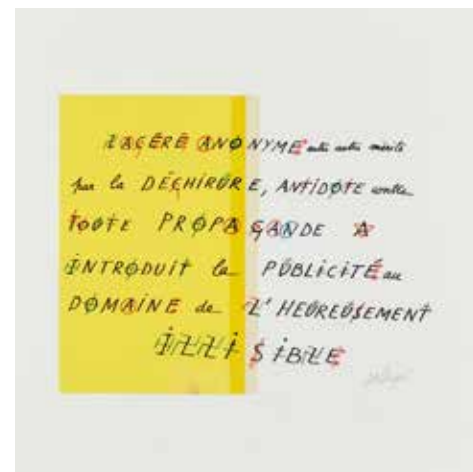 LACÉRÉ ANONYME entre autres mérite
par la DÉCHIRURE, ANTIDOTE contre
TOUTE PROPAGANDE A
INTRODUIT la PUBLICITÉ au
DOMAINE de L'HEUREUSEMENT
ILLISIBLE